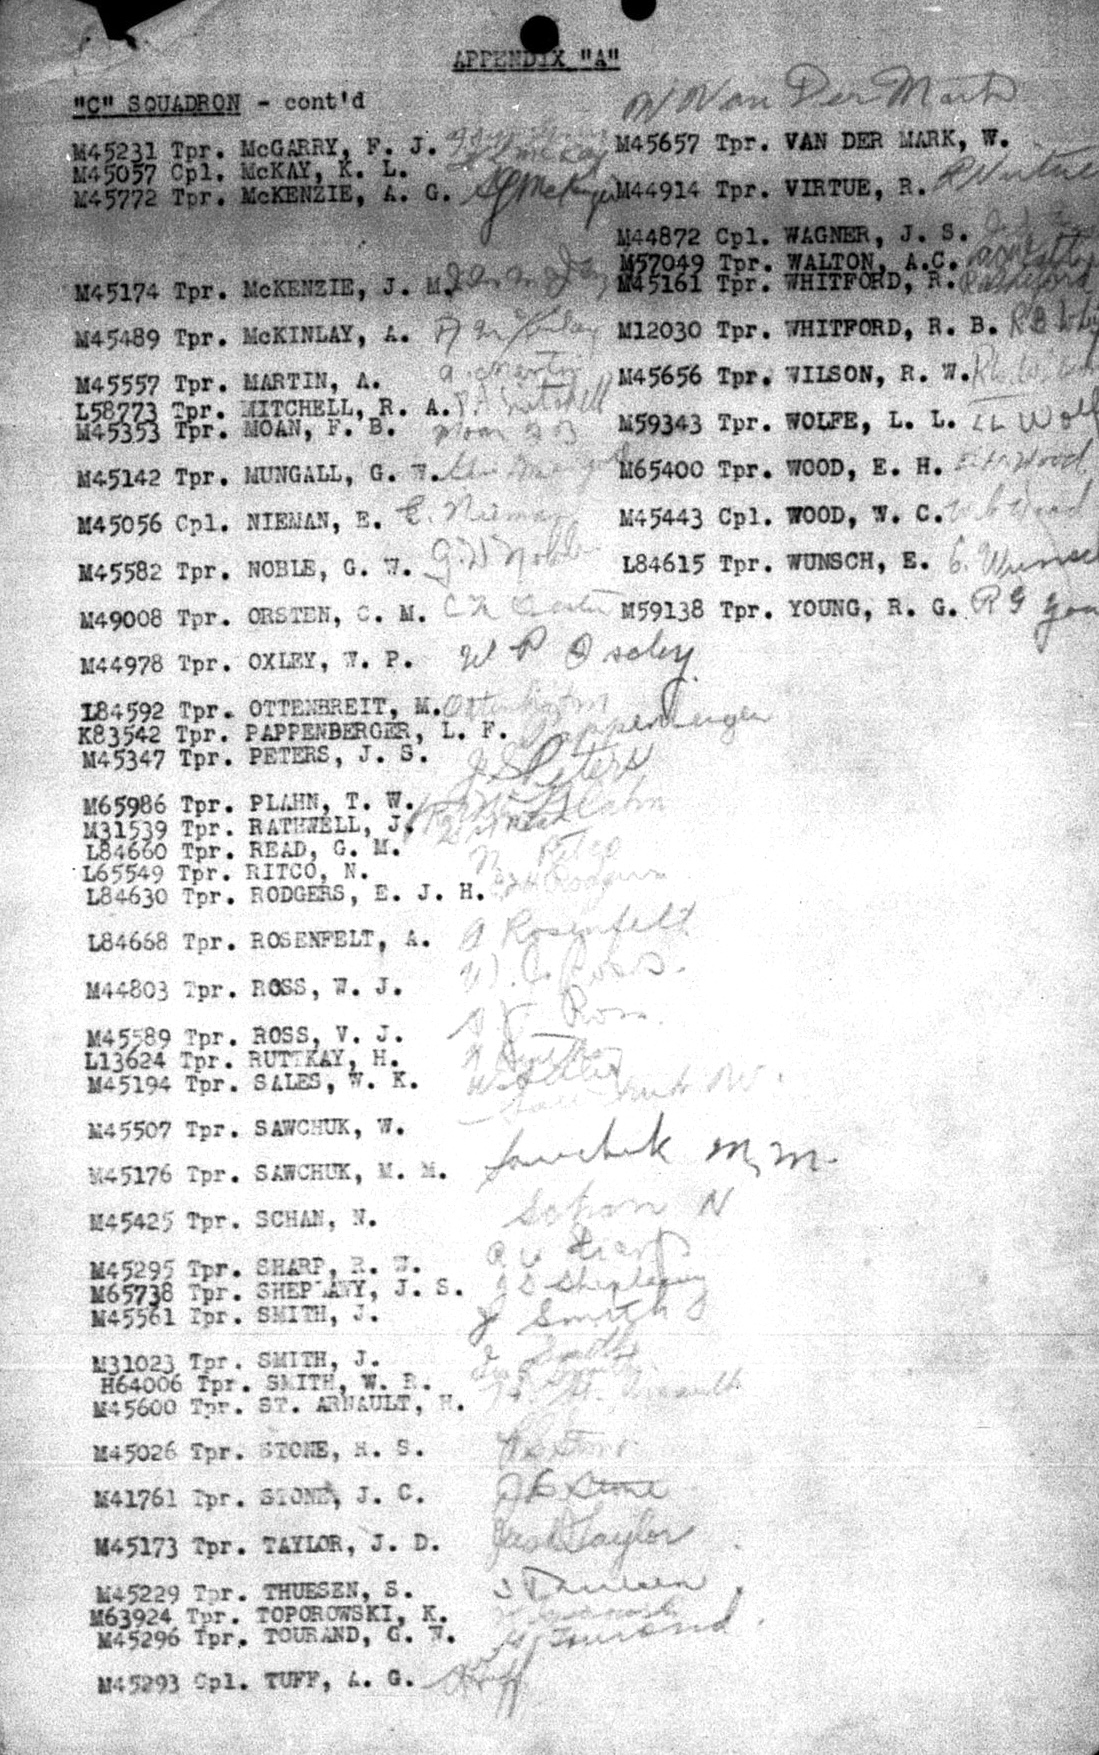 APPENDIX "A"
"C" SQUADRON - cont'd
M45231 Tpr. McGARRY, F. J.
M45057 Cpl. McKAY, K. L. K L McKay
M45772 Tpr. McKENZIE, A. G. AG McKenzie
M45174 Tpr. McKENZIE, J. M.
M45489 Tpr. McKINLAY, A. A McKinlay
M45557 Tpr. MARTIN, A. A. Martin
L58773 Tpr. MITCHELL, R. A. R A Mitchell
M45353 Tpr. MOAN, F. B. Moan F B
M45142 Tpr. MUNGALL, G. W.
M45056 Cpl. NIEMAN, E. E. Nieman
M45582 Tpr. NOBLE, G. W. G. W Noble
M49008 Tpr. ORSTEN, C. M.
M44978 Tpr. OXLEY, W. P. W P Oxley
L84592 Tpr. OTTENBREIT, M.
K83542 Tpr. PAPPENBERGER, L. F. Pappenberger
M45347 Tpr. PETERS, J. S. J S Peters
M65986 Tpr. PLAHN, T. W. Plahn
M31539 Tpr. RATHWELL, J.
L84660 Tpr. READ, G. M.
L65549 Tpr. RITCO, N. N. Ritco
L84630 Tpr. RODGERS, E. J. H. EJH Rodgers
L84668 Tpr. ROSENFELT, A. A Rosenfelt
M44803 Tpr. ROSS, W. J. W. J. Ross.
M45589 Tpr. ROSS, V. J. V. J. Ross.
L13624 Tpr. RUTTKAY, H.
M45194 Tpr. SALES, W. K. W K Sales
M45507 Tpr. SAWCHUK, W. Sawchuk W.
M45176 Tpr. SAWCHUK, M. M. Sawchuk M, M.
M45425 Tpr. SCHAN, N. Schan N
M45295 Tpr. SHARP, R. W. R W Sharp
M65738 Tpr. SHEPLAWY, J. S. J S Sheplawy
M45561 Tpr. SMITH, J. J Smith
M31023 Tpr. SMITH, J. J. Smith
H64006 Tpr. SMITH, W. R.
M45600 Tpr. ST. ARNAULT, H. H. St. Arnault
M45026 Tpr. STONE, H. S. H S Stone
M41761 Tpr. STONE, J. C. J C Stone
M45173 Tpr. TAYLOR, J. D. Jas D Taylor
M45229 Tpr. THUESEN, S. S Thuesen
M63924 Tpr. TOPOROWSKI, K.
M45296 Tpr. TOURAND, G. W. G W Tourand
M45293 Cpl. TUFF, A. G. A G Tuff
W Van Der Mark
M45657 Tpr. VAN DER MARK, W.
M44914 Tpr. VIRTUE, R. R Virtue
M44872 Cpl. WAGNER, J. S.
M57049 Tpr. WALTON, A.C.
M45161 Tpr. WHITFORD, R. R Whitford
M12030 Tpr. WHITFORD, R. B. R B Whit
M45656 Tpr. WILSON, R. W. R W Wilson
M59343 Tpr. WOLFE, L. L. LL Wolf
M65400 Tpr. WOOD, E. H. E H Wood
M45443 Cpl. WOOD, W. C. W C Wood
L84615 Tpr. WUNSCH, E. E. Wunsch
M59138 Tpr. YOUNG, R. G. R G You